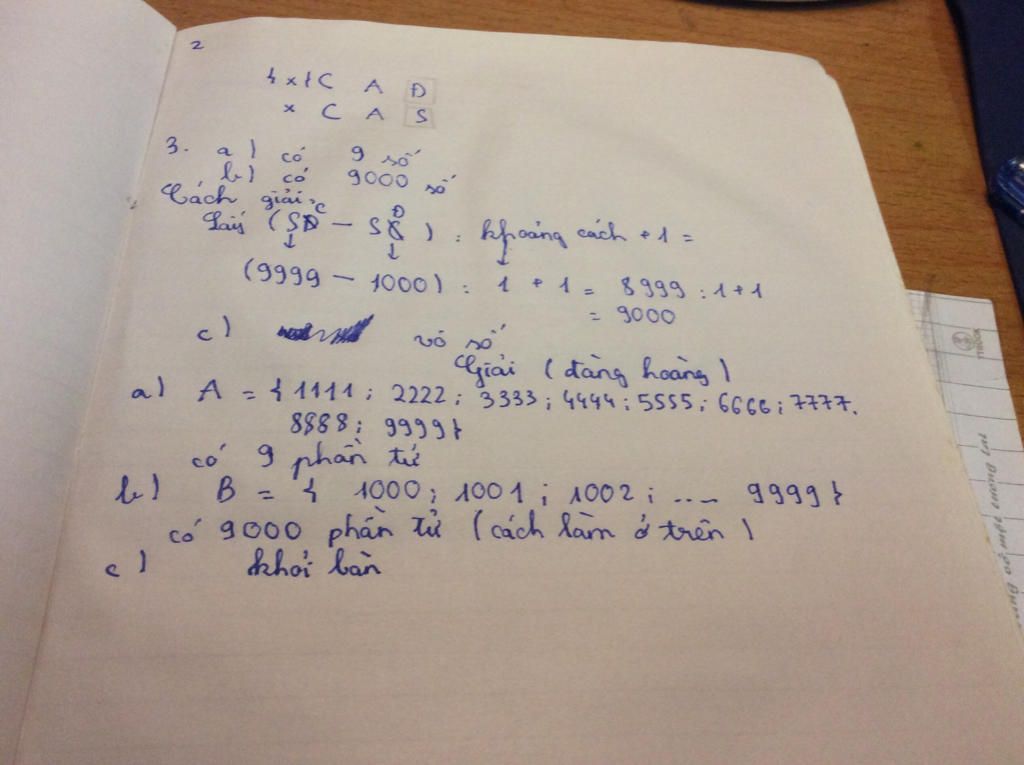 2
{ x } C A Đ
x C A S
3. a) có 9 số
b) có 9000 số
Cách giải:
Lấy (SC – SĐ) : khoảng cách + 1 =
(9999 – 1000) : 1 + 1 = 8999 : 1 + 1
= 9000
c) vô số
Giải (đàng hoàng)
a) A = { 1111 ; 2222 ; 3333 ; 4444 ; 5555 ; 6666 ; 7777.
8888 ; 9999 }
có 9 phần tử
b) B = { 1000 ; 1001 ; 1002 ; .... 9999 }
có 9000 phần tử (cách làm ở trên)
c) khỏi bàn